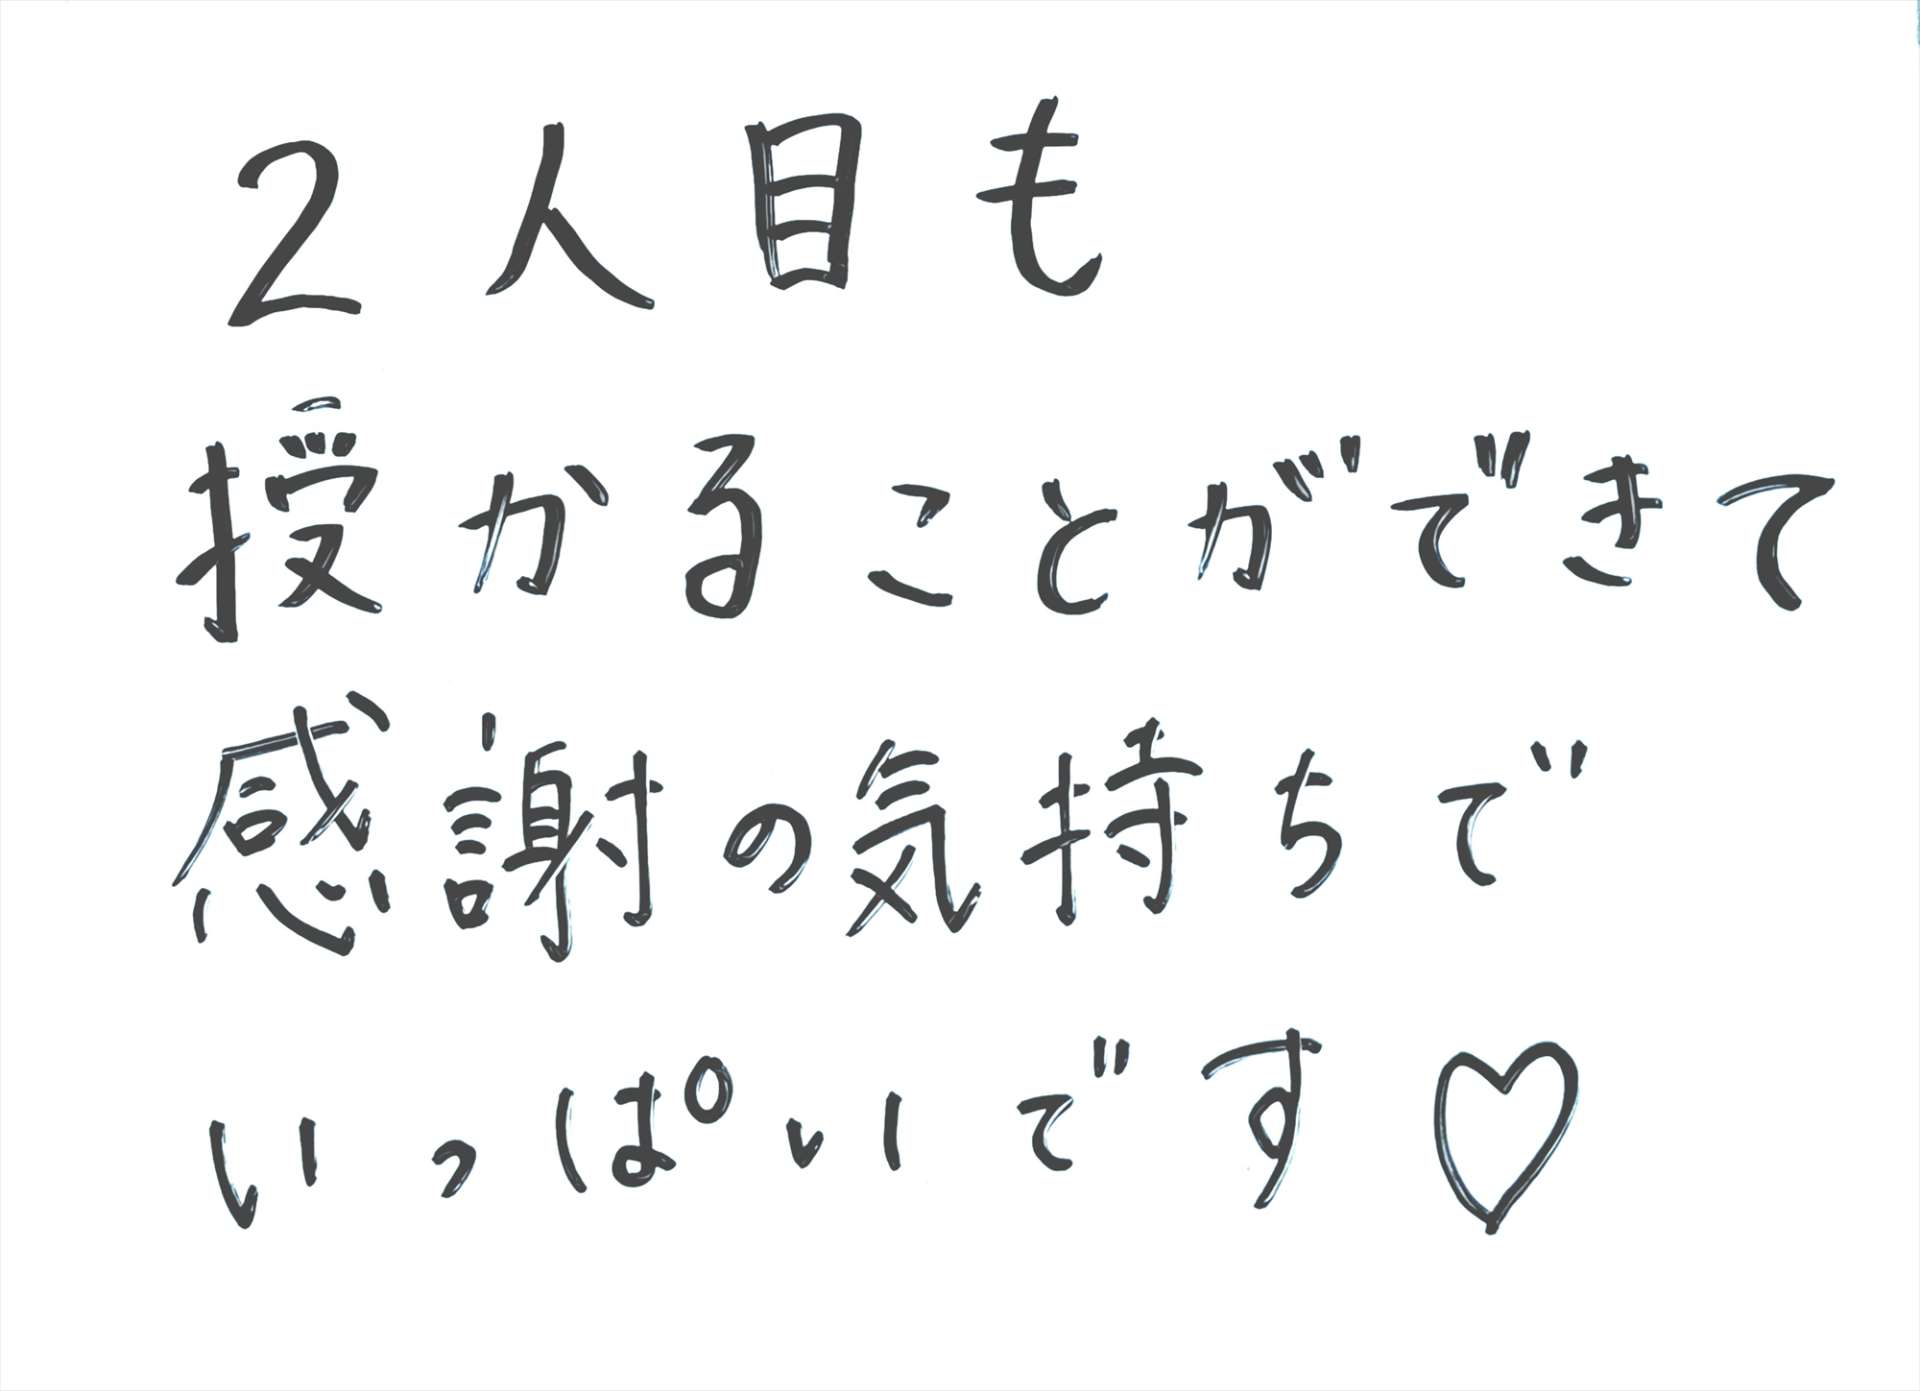 2人目も
授かることができて
感謝の気持ちで
いっぱいです♡